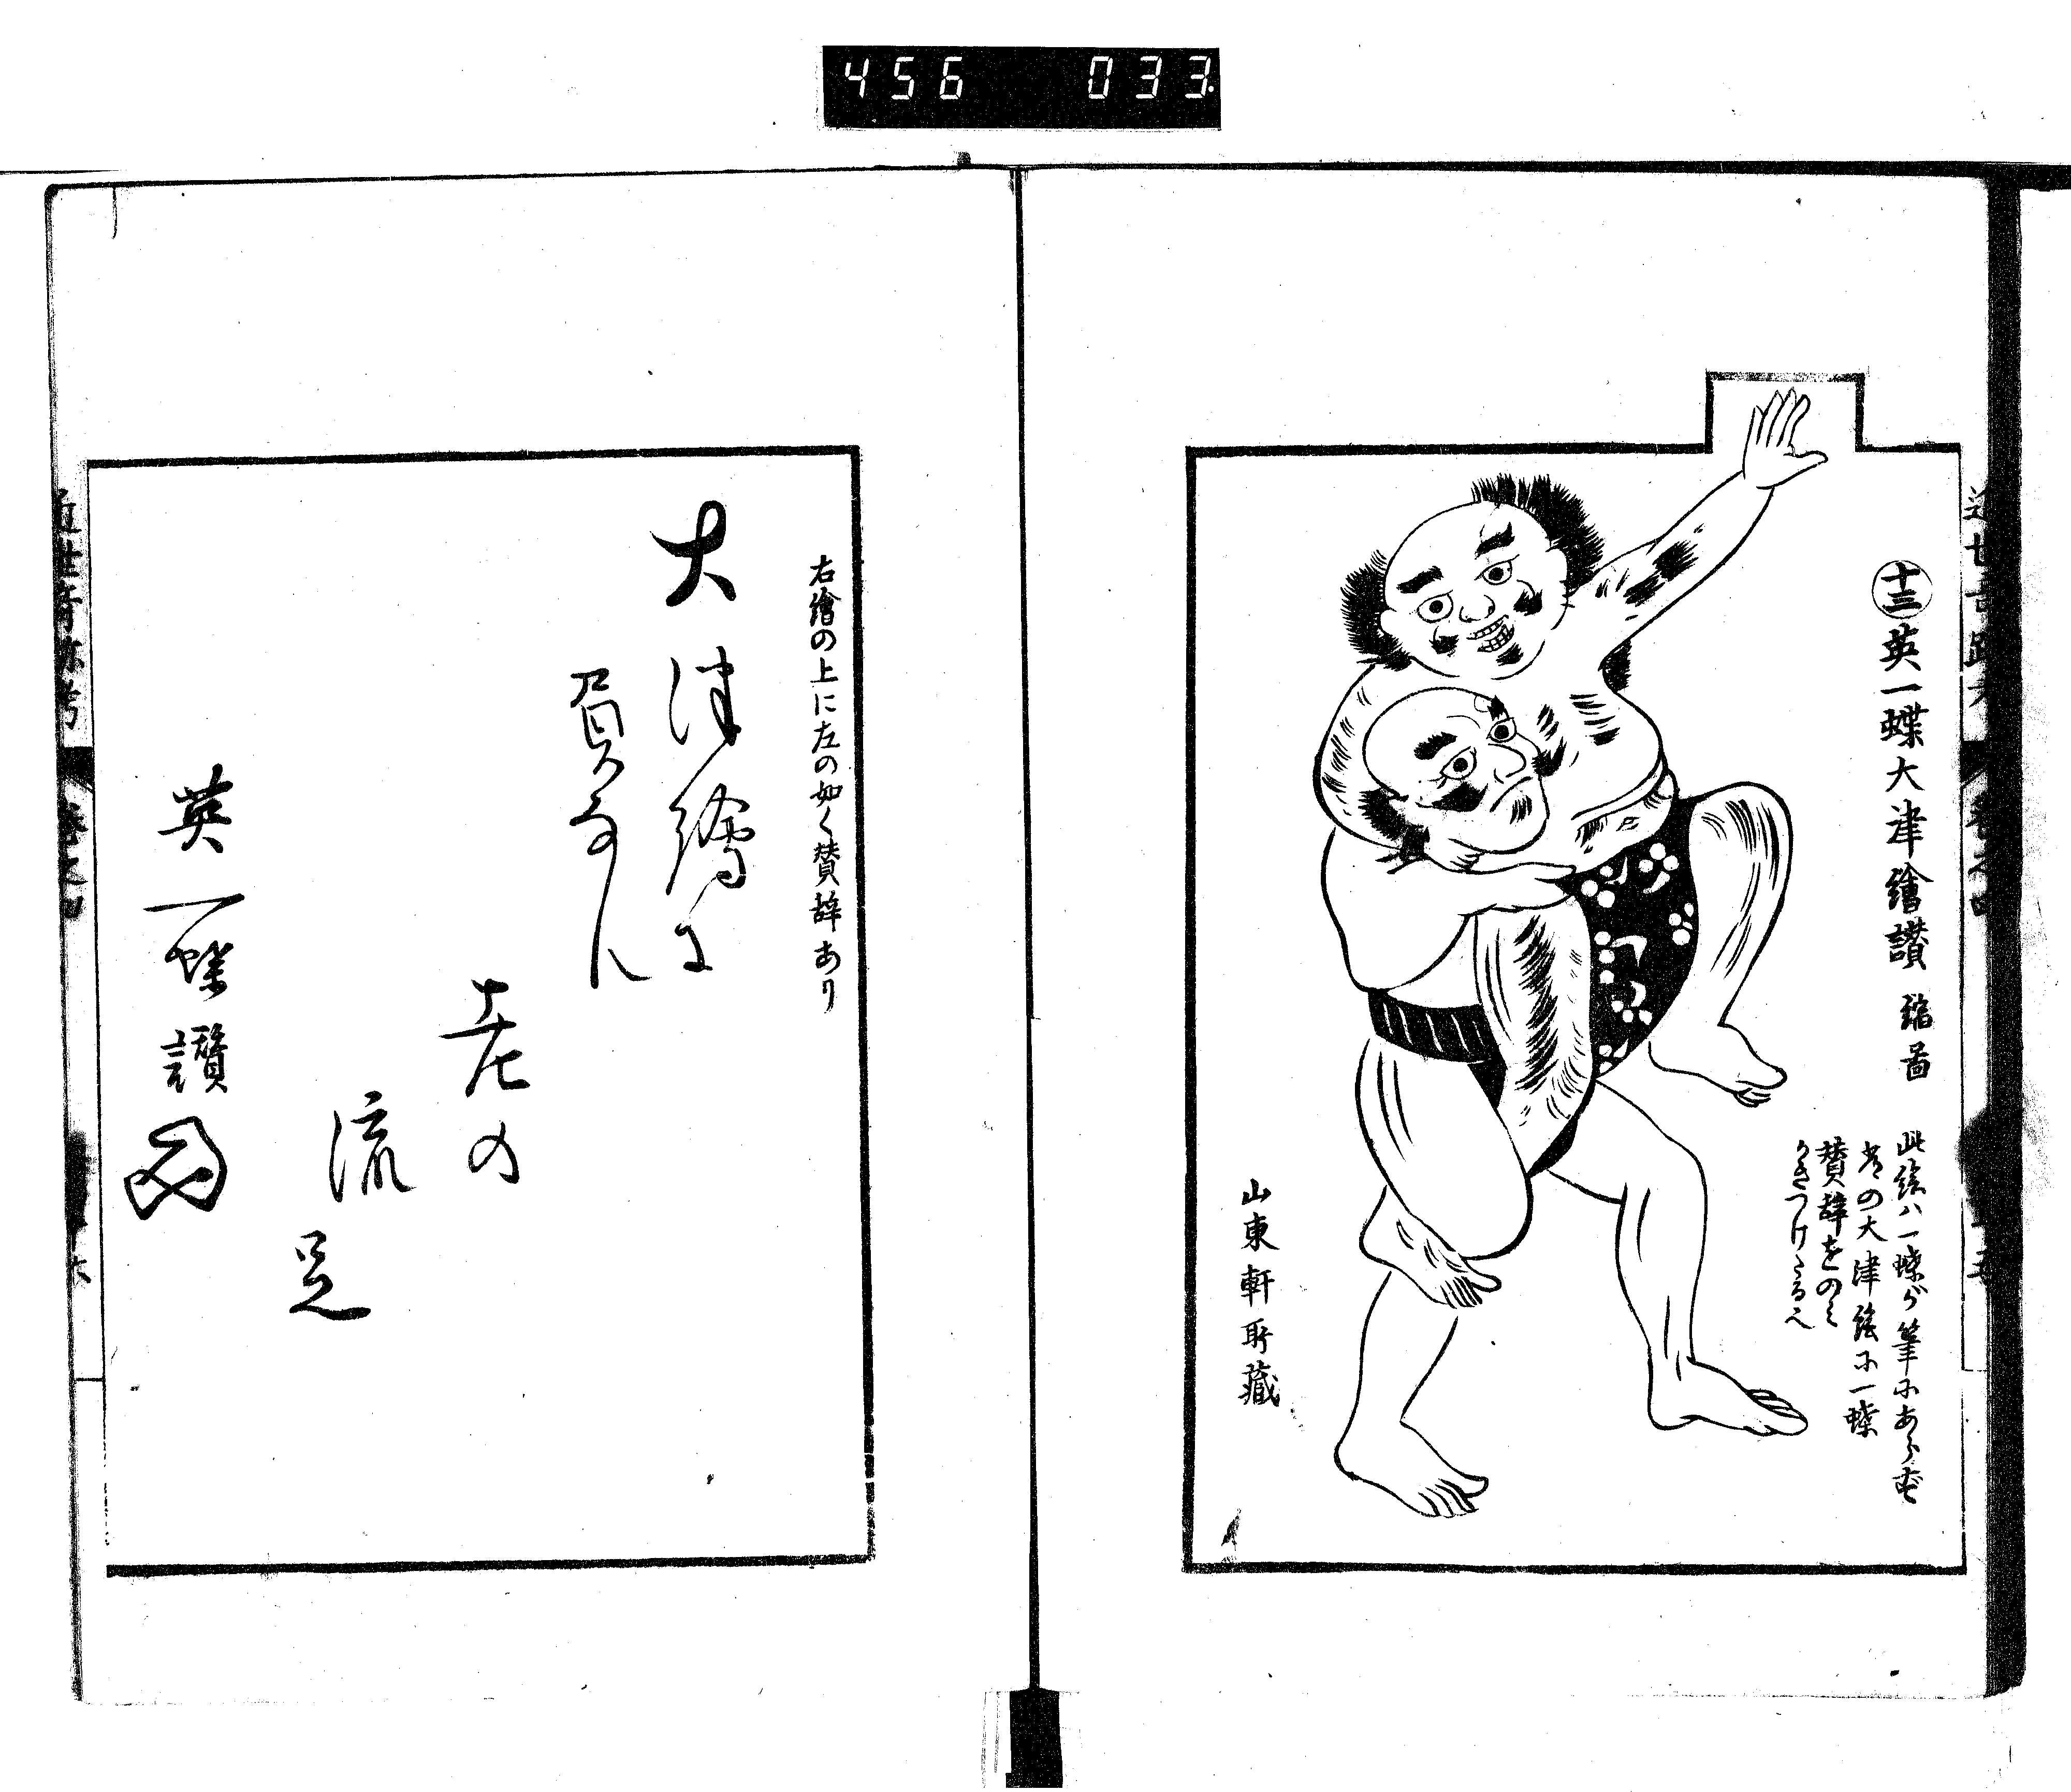 456 033
近世奇跡考 巻之四
十三 英一蝶大津繪讃 縮啚
此絵ハ一蝶が筆にあらず
昔の大津絵に一蝶
賛辞をのミ
かきつけたる也
山東軒所藏
右繪の上に左の如く賛辞あり
大津繪に
負なん
老の
流
足
英一蝶讃
近世奇跡考 巻之四 十六